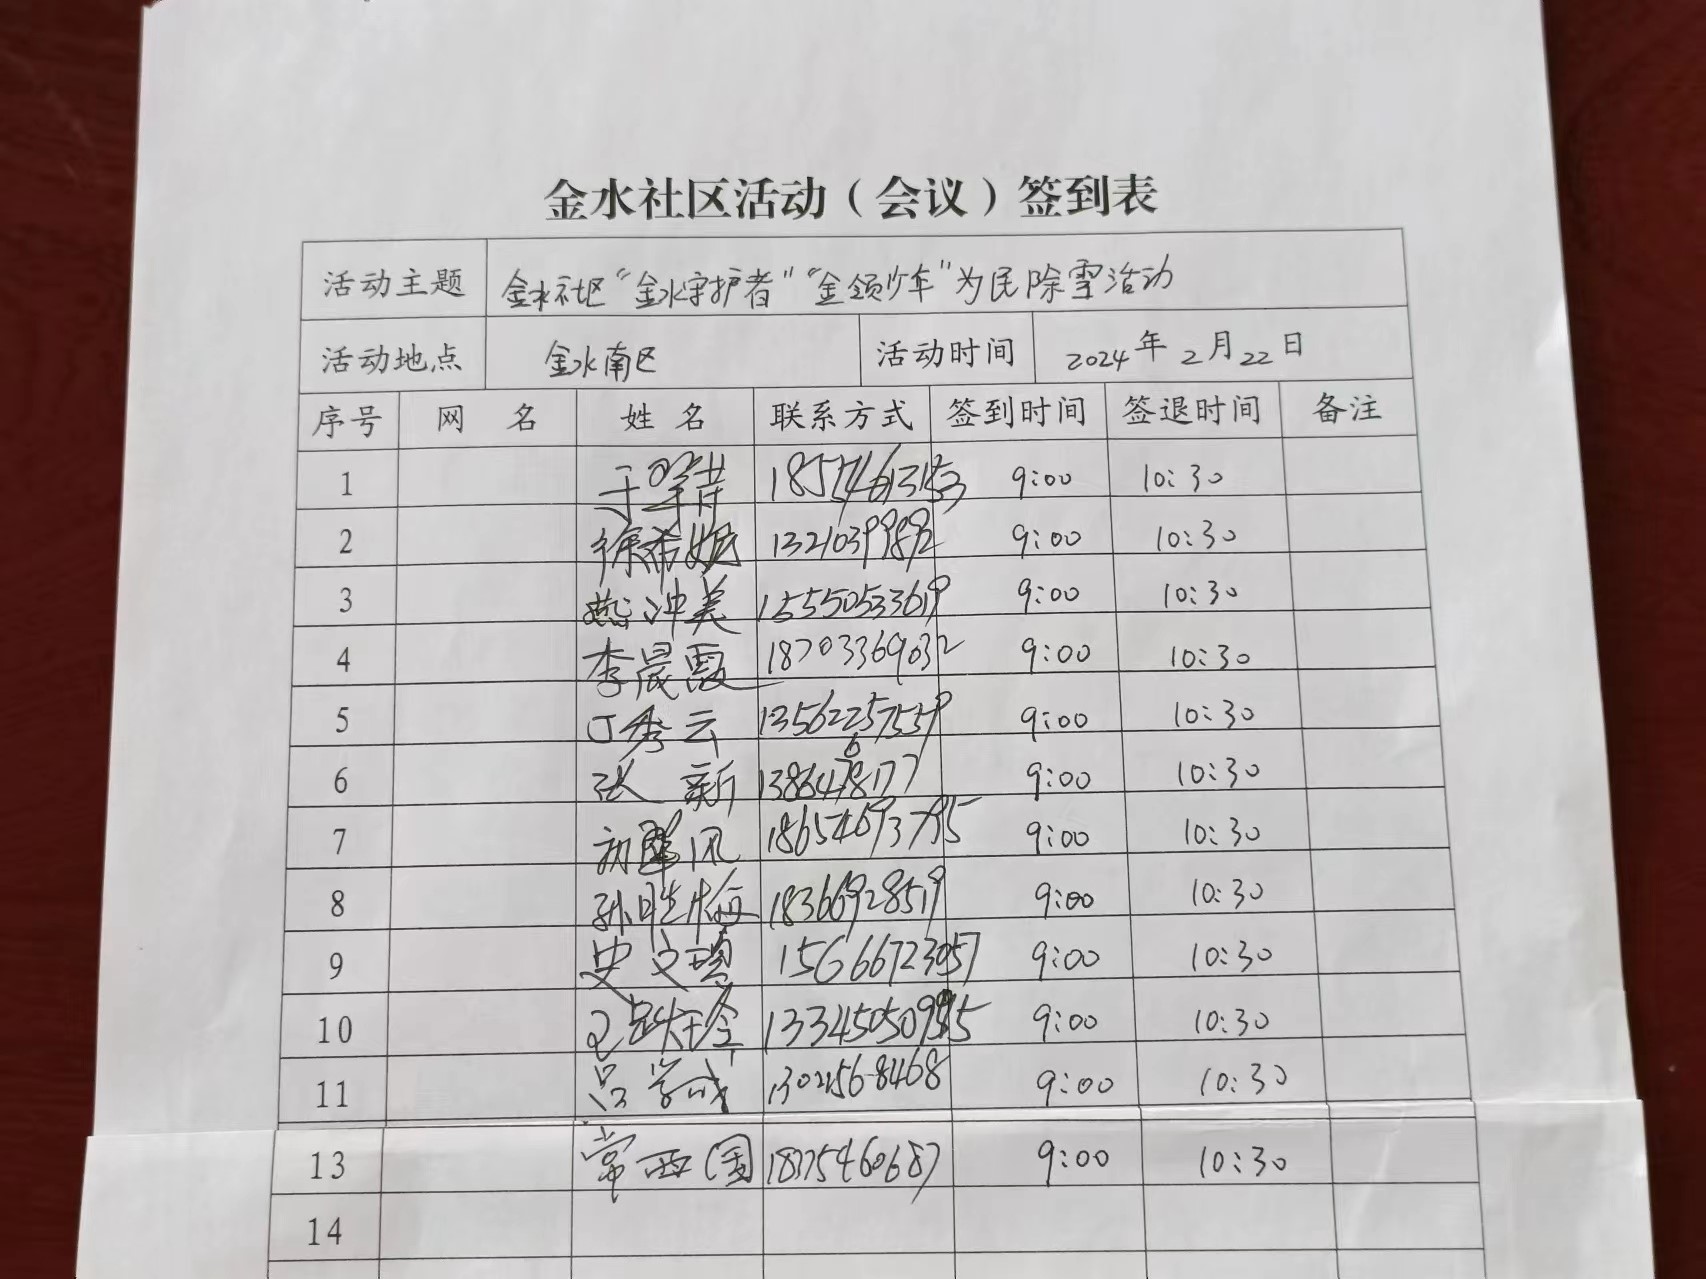 金水社区活动（会议）签到表
活动主题 金水社区“金水守护者”“金领少年”为民除雪活动
活动地点 金水南区 活动时间 2024年2月22日
序号 网 名 姓 名 联系方式 签到时间 签退时间 备注
1 9:00 10:30
2 徐希妮 13210399892 9:00 10:30
3 燕冲美 15550533619 9:00 10:30
4 李晨霞 18703369032 9:00 10:30
5 丁秀云 13562257559 9:00 10:30
6 张新 9:00 10:30
7 18654693795 9:00 10:30
8 孙胜梅 18366928519 9:00 10:30
9 史文 15666723057 9:00 10:30
10 9:00 10:30
11 吕学成 9:00 10:30
13 常西国 18175460687 9:00 10:30
14